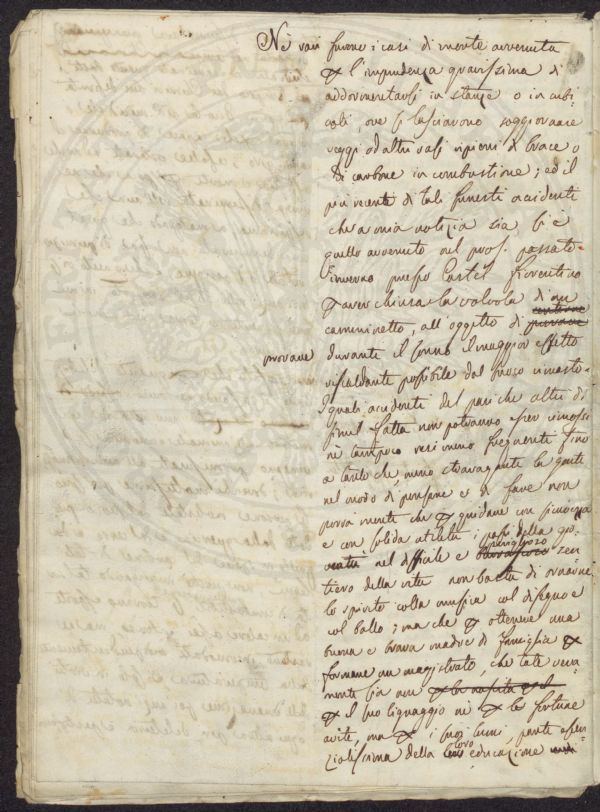 Nè rari furono i casi di morte avvenuta
p l'imprudenza gravissima di
addormentarsi in stanze o in cubi-
coli, ove si lasciavono soggiornare
veggi od altri vasi ripieni di brace o
di carbone in combustione; ed il
più recente di tali funesti accidenti
che a mia notizia sia, si è
quello avvenuto nel pross. passato
inverno presso Castel Fiorentino
p aver chiusa la valvola di un
camminetto, all'oggetto di
provare durante il sonno il maggior effetto
riscaldante possibile dal fuoco rimasto.
I quali accidenti del pari che altri di
simil fatta non potranno esser rimossi
nè tampoco resi meno frequenti fino
a tanto che, meno stravagante la gente
nel modo di pensare e di fare non
porrà mente che p guidare con sicurezza
e con solida utilità i passi della gio-
ventù nel difficile e periglioso sen-
tiero della vita non basta di ornarne
lo spirito colla musica col disegno e
col ballo; ma che p ottenere una
buona e brava madre di famiglia p
formare un magistrato, che tale vera-
mente sia non
p il suo lignaggio nè p le fortune
avite, ma p i suoi lumi, parte essen-
zialissima della loro educazione